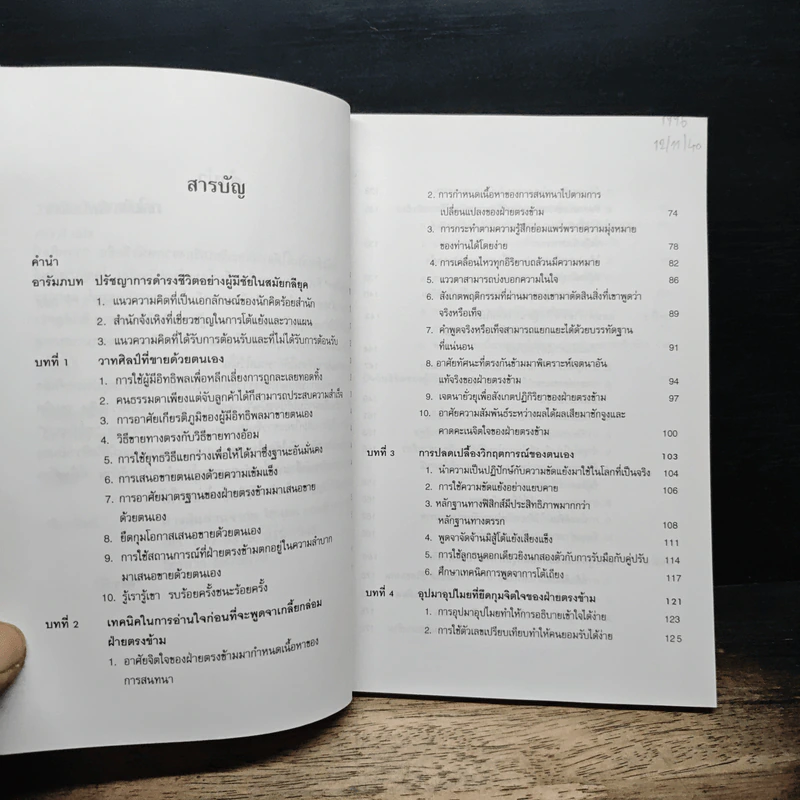 สารบัญ
คำนำ
อารัมภบท ปรัชญาการดำรงชีวิตอย่างผู้มีชัยในสมัยกลียุค
1. แนวความคิดที่เป็นเอกลักษณ์ของนักคิดร้อยสำนัก
2. สำนักจ้งเหิงที่เชี่ยวชาญในการโต้แย้งและวางแผน
3. แนวความคิดที่ได้รับการต้อนรับและที่ไม่ได้รับการต้อนรับ
บทที่ 1 วาทศิลป์ที่ขายด้วยตนเอง
1. การใช้ผู้มีอิทธิพลเพื่อหลีกเลี่ยงการถูกละเลยทอดทิ้ง
2. คนธรรมดาเพียงแต่จับลูกค้าได้ก็สามารถประสบความสำเร็จ
3. การอาศัยเกียรติภูมิของผู้มีอิทธิพลมาขายตนเอง
4. วิธีขายทางตรงกับวิธีขายทางอ้อม
5. การใช้ยุทธวิธีแยกร่างเพื่อให้ได้มาซึ่งฐานะอันมั่นคง
6. การเสนอขายตนเองด้วยความเข้มแข็ง
7. การอาศัยมาตรฐานของฝ่ายตรงข้ามมาเสนอขาย
ด้วยตนเอง
8. ยึดกุมโอกาสเสนอขายด้วยตนเอง
9. การใช้สถานการณ์ที่ฝ่ายตรงข้ามตกอยู่ในความลำบาก
มาเสนอขายด้วยตนเอง
10. รู้เรารู้เขา รบร้อยครั้งชนะร้อยครั้ง
บทที่ 2 เทคนิคในการอ่านใจก่อนที่จะพูดจาเกลี้ยกล่อม
ฝ่ายตรงข้าม
1. อาศัยจิตใจของฝ่ายตรงข้ามมากำหนดเนื้อหาของ
การสนทนา
12/11/40
2. การกำหนดเนื้อหาของการสนทนาไปตามการ
เปลี่ยนแปลงของฝ่ายตรงข้าม 74
3. การกระทำตามความรู้สึกย่อมแพร่พรายความมุ่งหมาย
ของท่านได้โดยง่าย 78
4. การเคลื่อนไหวทุกอิริยาบถล้วนมีความหมาย 82
5. แววตาสามารถบ่งบอกความในใจ 86
6. สังเกตพฤติกรรมที่ผ่านมาของเขามาตัดสินสิ่งที่เขาพูดว่า
จริงหรือเท็จ 89
7. คำพูดจริงหรือเท็จสามารถแยกแยะได้ด้วยบรรทัดฐาน
ที่แน่นอน 91
8. อาศัยทัศนะที่ตรงกันข้ามมาพิเคราะห์เจตนาอัน
แท้จริงของฝ่ายตรงข้าม 94
9. เจตนายั่วยุเพื่อสังเกตปฏิกิริยาของฝ่ายตรงข้าม 97
10. อาศัยความสัมพันธ์ระหว่างผลได้ผลเสียมาชักจูงและ
คาดคะเนจิตใจของฝ่ายตรงข้าม 100
บทที่ 3 การปลดเปลื้องวิกฤตการณ์ของตนเอง 103
1. นำความเป็นปฏิปักษ์กับความขัดแย้งมาใช้ในโลกที่เป็นจริง 104
2. การใช้ความขัดแย้งอย่างแยบคาย 106
3. หลักฐานทางฟิสิกส์มีประสิทธิภาพมากกว่า
หลักฐานทางตรรก 108
4. พูดจาจัดจ้านมิสู้โต้แย้งเสียงแข็ง 111
5. การใช้ลูกธนูดอกเดียวยิงนกสองตัวกับการรับมือกับคู่ปรับ 114
6. ศึกษาเทคนิคการพูดจาการโต้เถียง 117
บทที่ 4 อุปมาอุปไมยที่ยึดกุมจิตใจของฝ่ายตรงข้าม 121
1. การอุปมาอุปไมยทำให้การอธิบายเข้าใจได้ง่าย 123
2. การใช้ตัวเลขเปรียบเทียบทำให้คนยอมรับได้ง่าย 125